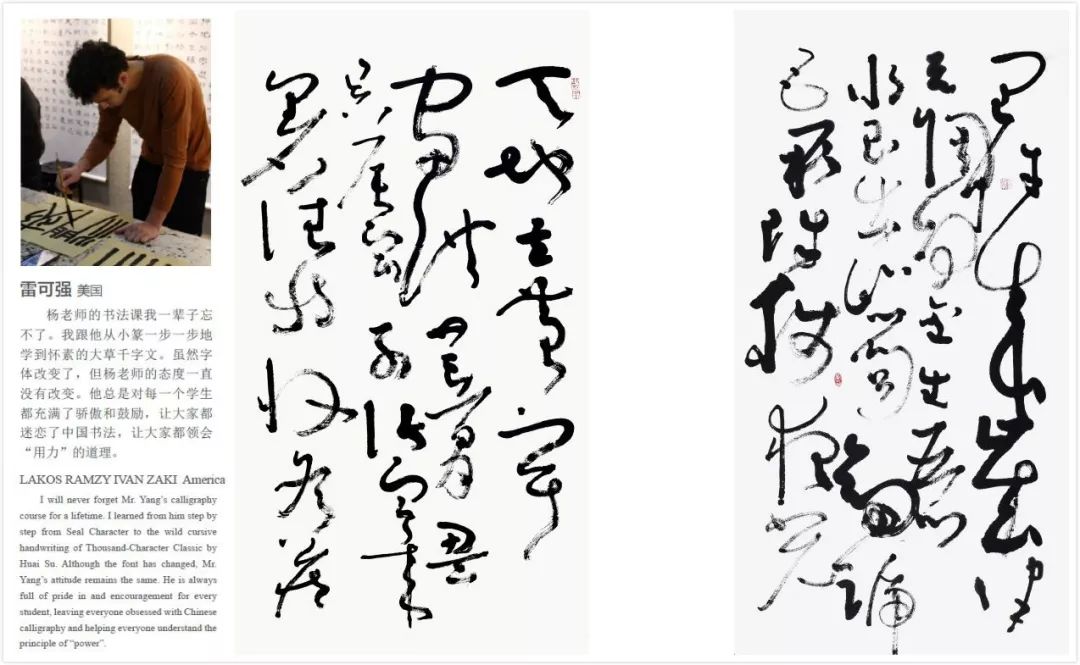 雷可强 美国
杨老师的书法课我一辈子忘
不了。我跟他从小篆一步一步地
学到怀素的大草千字文。虽然字
体改变了，但杨老师的态度一直
没有改变。他总是对每一个学生
都充满了骄傲和鼓励，让大家都
迷恋了中国书法，让大家都领会
“用力”的道理。
LAKOS RAMZY IVAN ZAKI America
I will never forget Mr. Yang's calligraphy
course for a lifetime. I learned from him step by
step from Seal Character to the wild cursive
handwriting of Thousand-Character Classic by
Huai Su. Although the font has changed, Mr.
Yang's attitude remains the same. He is always
full of pride in and encouragement for every
student, leaving everyone obsessed with Chinese
calligraphy and helping everyone understand the
principle of “power”.
天地玄黃宇
宙洪荒日月盈
昃辰宿列張寒來
暑往秋收冬藏
閏餘成歲律
呂調金生麗
水玉出崑岡劍號
巨闕珠稱夜光